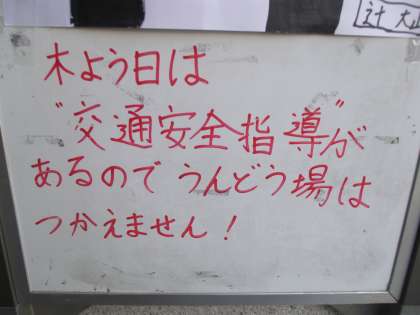 木よう日は
"交通安全指導"が
あるので うんどう場は
つかえません!